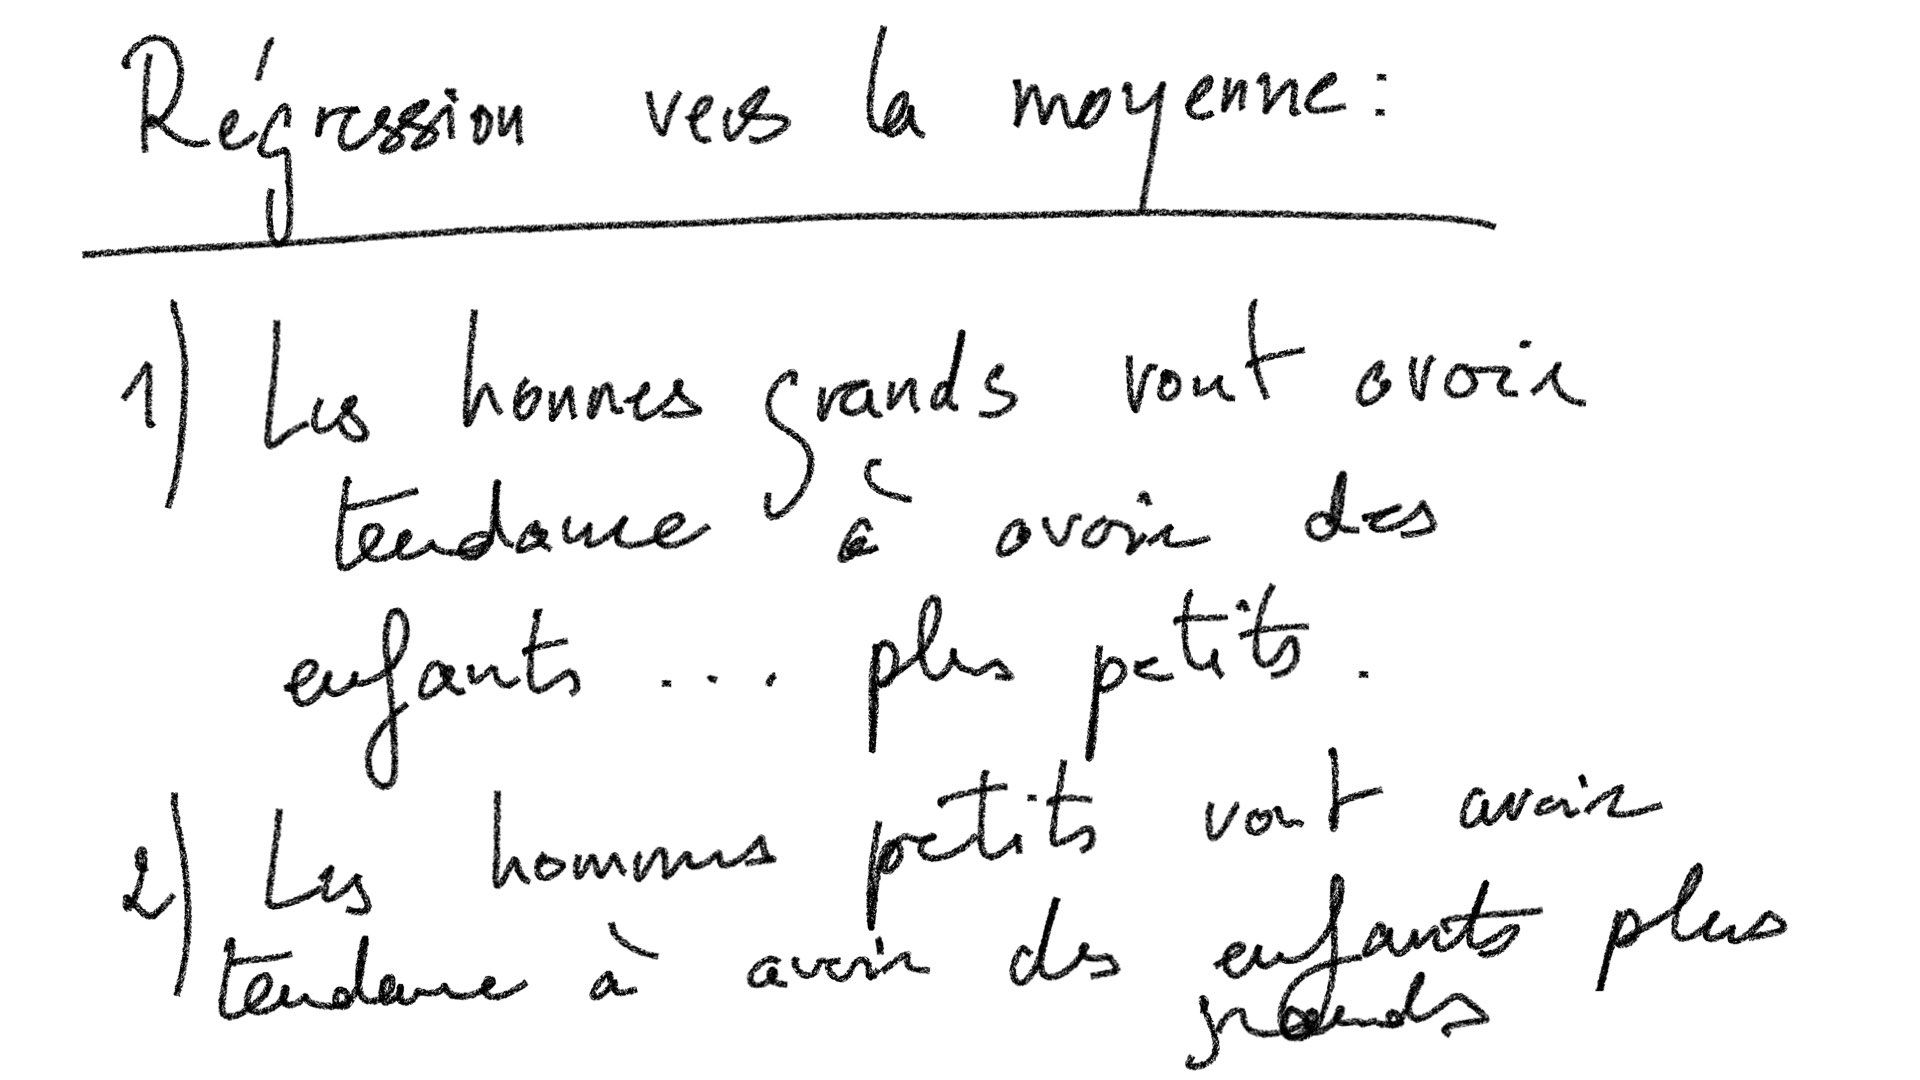 Régression vers la moyenne :
1) Les hommes grands vont avoir
tendance à avoir des
enfants ... plus petits.
2) Les hommes petits vont avoir
tendance à avoir des enfants plus
grands